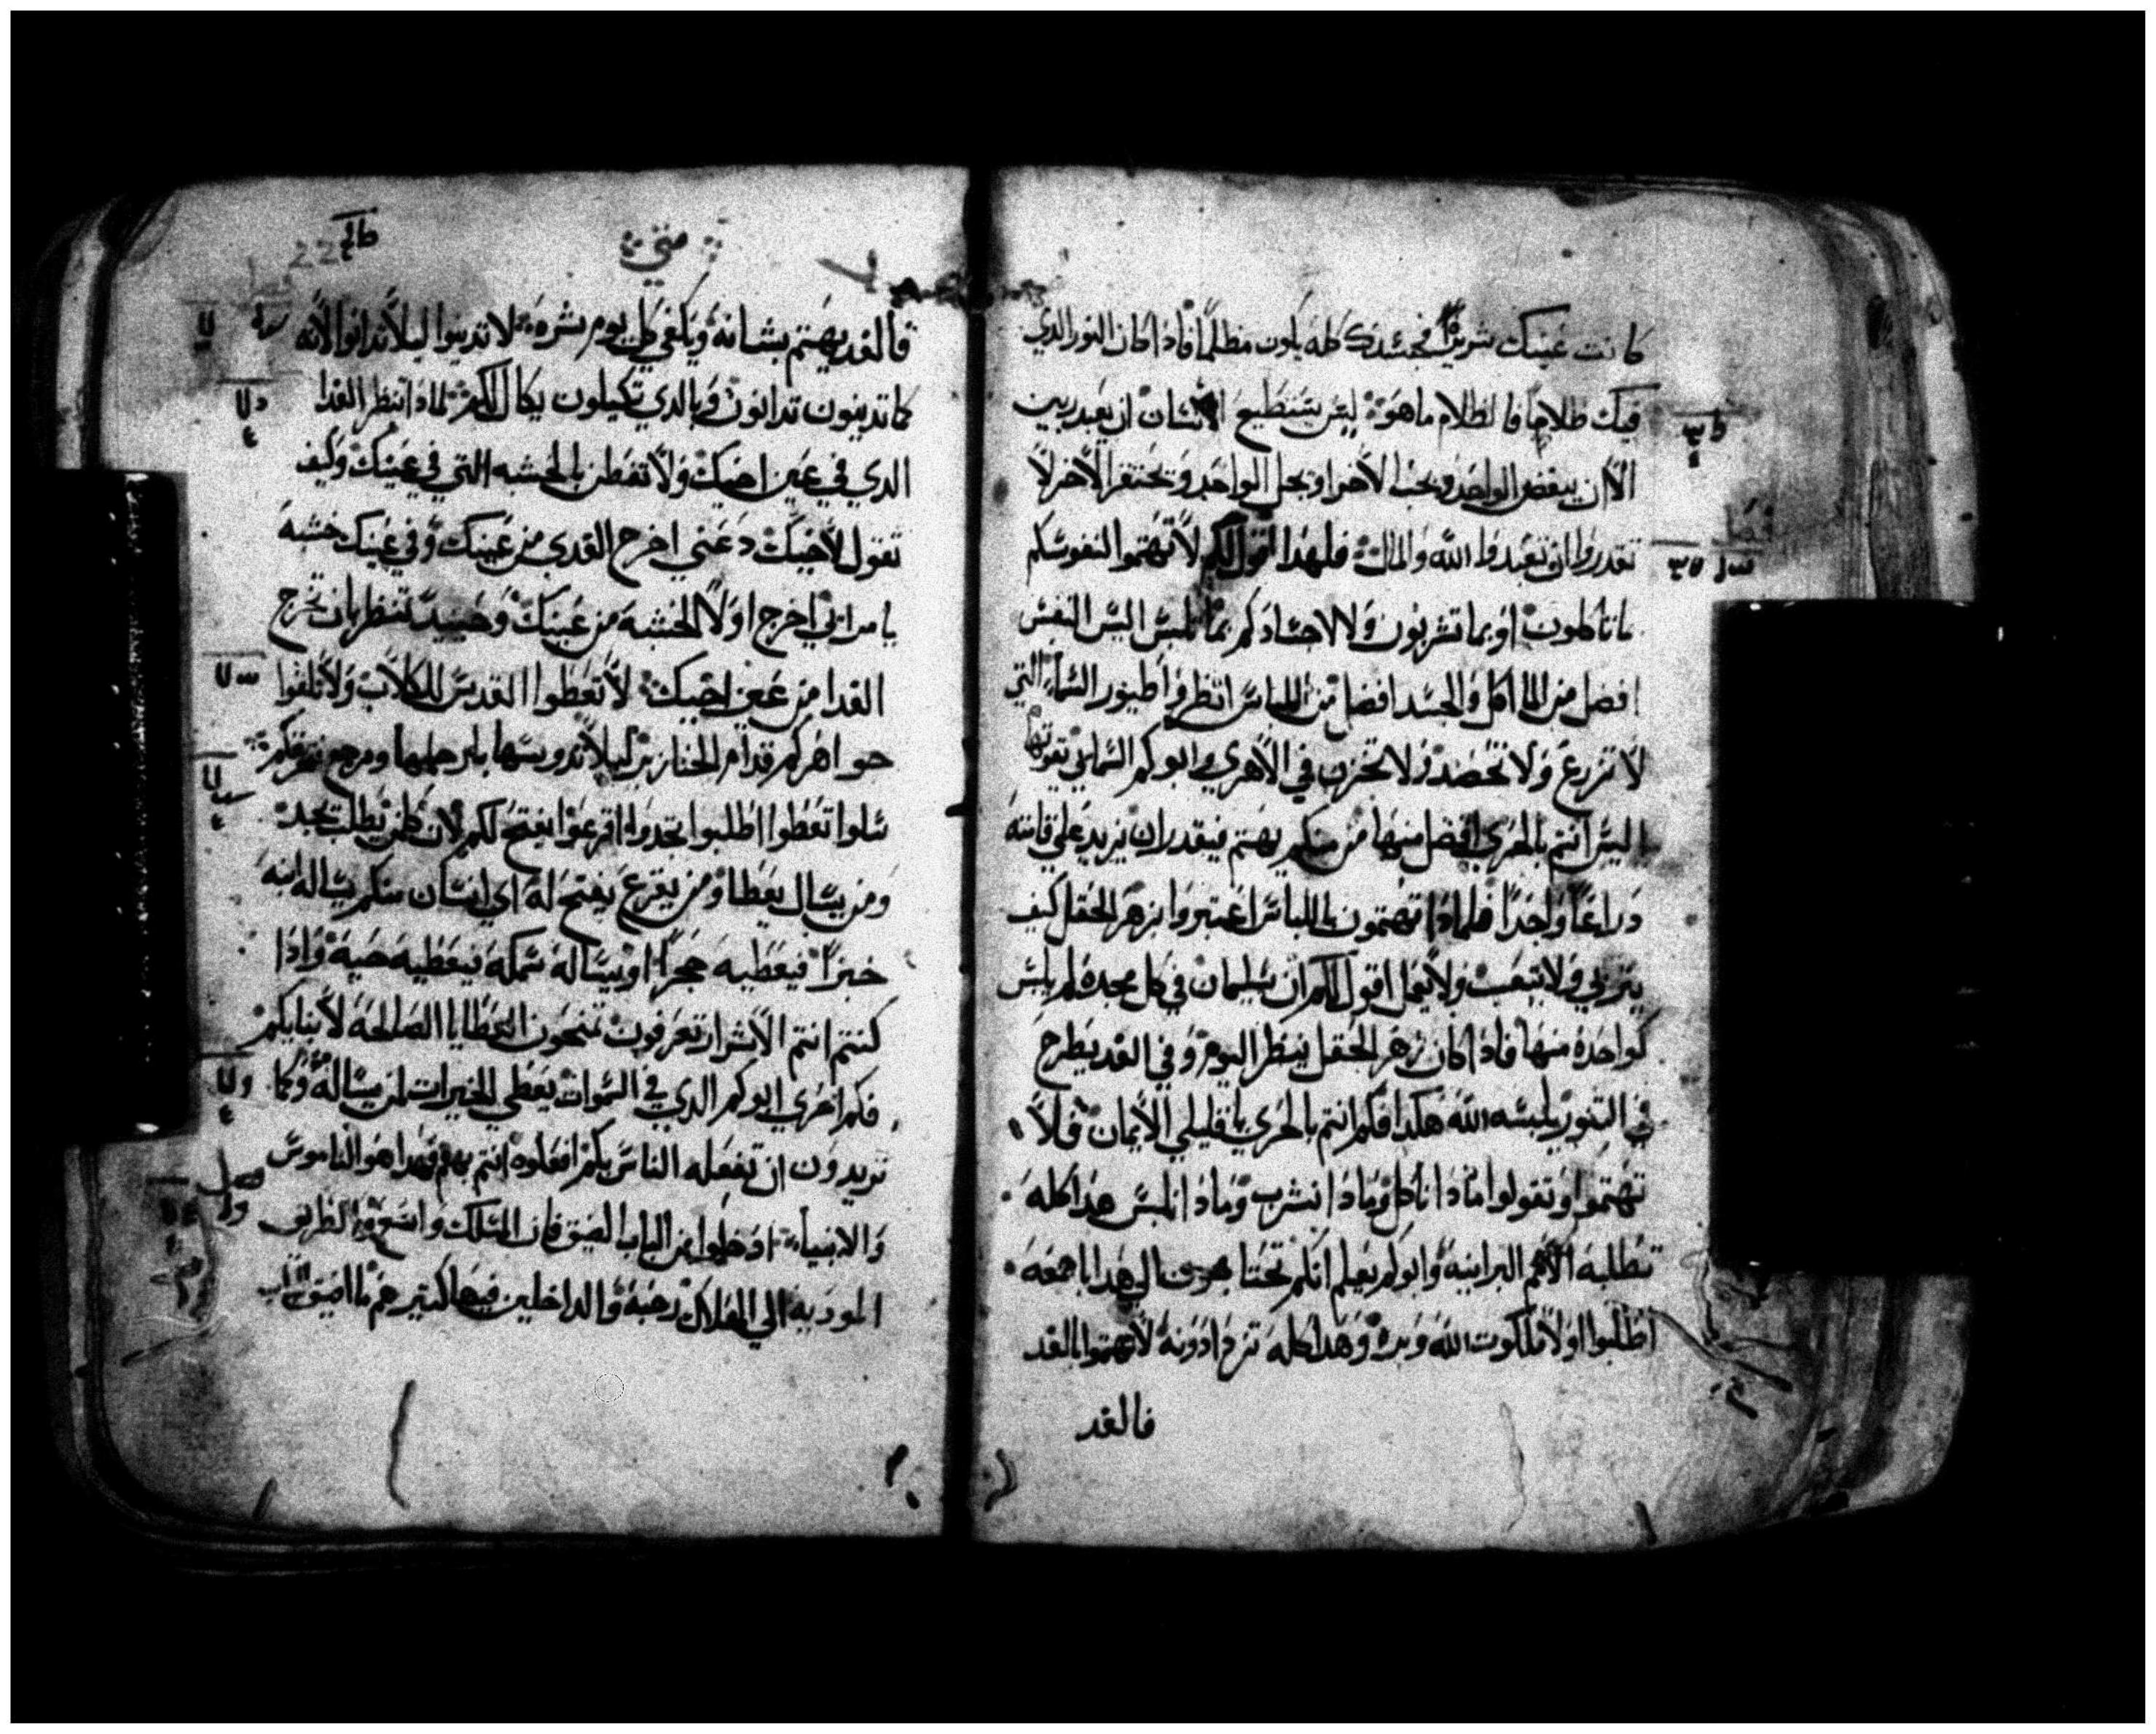 كانت عينك شريره فجسدك كله يكون مظلما فاذا كان النور الدي
فيك ظلاما فالظلام ما هو ليس يستطيع الانسان ان يعبد ربين
الا ان يبغض الواحد ويحب الاخر او يجل الواحد ويحتقر الاخر لا
تقدروا ان تعبدوا الله والمال فلهدا اقول لكم لا تهتموا لنفوسكم
ما تاكلون او بما تشربون ولا لاجسادكم بما تلبس اليس النفس
افضل من الماكل والجسد افضل من اللباس انظروا طيور السماء التي
لا تزرع ولا تحصد ولا تخزن في الاهري وابوكم السماي يقوتها
اليس انتم بالحري افضل منها من منكم يهتم فيقدر ان يزيد علي قامته
دراعا واحدا فلمادا تهتمون باللباس اعتبروا بزهر الحقل كيف
يتربي ولا يتعب ولا يعمل اقول لكم ان سليمان في كل مجده لم يلبس
كواحده منها فادا كان زهر الحقل ينظر اليوم وفي الغد يطرح
في التنور يلبسه الله هكدا فكم انتم بالحري يا قليلي الايمان فلا
تهتموا وتقولوا مادا ناكل ومادا نشرب ومادا نلبس هدا كله
تطلبه الامم البرانيه وابوكم يعلم انكم تحتاجون الي هدا باجمعه
اطلبوا اولا ملكوت الله وبره وهدا كله تزدادونه لا تهتموا بالغد
فالغد
متي
22
فالغد يهتم بشانه ويكفي كل يوم شره لا تدينوا ليلا تدانوا لانه
كما تدينون تدانون وبالدي تكيلون يكال لكم لمادا تنظر القدا
الدي في عين اخيك ولا تفطن بالخشبه التي في عينك وكيف
تقول لاخيك دعني اخرج القدي من عينك وفي عينك خشبه
يا مراي اخرج اولا الخشبه من عينك وحينيد تنظر بان تخرج
القدا من عين اخيك لا تعطوا القدس للكلاب ولا تلقوا
جواهركم قدام الخنازير ليلا تدوسها بارجلها وترجع تمزقكم
سلوا تعطوا اطلبوا تجدوا اقرعوا يفتح لكم لان كل من يطلب يجد
ومن يسال يعطا ومن يقرع يفتح له اي انسان منكم يساله ابنه
خبزا فيعطيه حجرا او يساله سمكه فيعطيه حيه وادا
كنتم انتم الاشرار تعرفون تمنحون العطايا الصالحه لابنايكم
فكم احري ابوكم الدي في السموات يعطي الخيرات لمن يساله وكما
تريدون ان تفعله الناس بكم افعلوه انتم بهم فهدا هو الناموس
والانبياء ادخلوا من الباب الضيق فان المسلك واسع والطريق
الموديه الي الهلاك رحبه والداخلين فيها كتير هم ما اضيق الباب